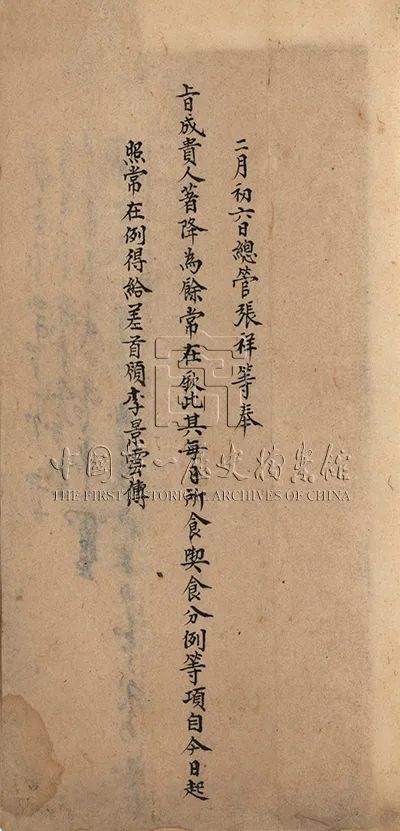 二月初六日總管張祥等奉
旨成貴人著降為餘常在欽此其每日所食喫食分例等項自今日起
照常在例得給差首領李景雲傳
中國第一歷史檔案館
THE FIRST HISTORICAL ARCHIVES OF CHINA